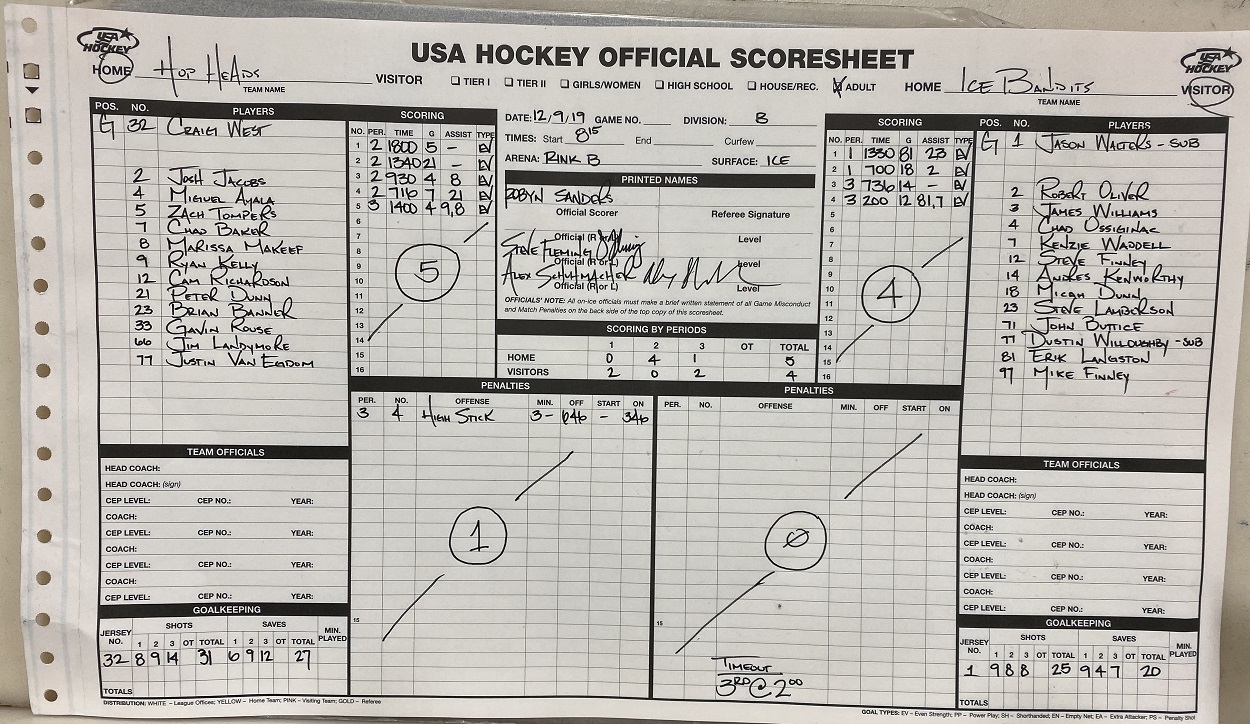 USA HOCKEY
USA HOCKEY
USA HOCKEY OFFICIAL SCORESHEET
HOME HOP HEADS VISITOR
TEAM NAME
TIER I TIER II GIRLS/WOMEN HIGH SCHOOL HOUSE/REC. ADULT
HOME ICE BANDITS VISITOR
TEAM NAME
POS. NO. PLAYERS
G 32 CRAIG WEST
2 JOSH JACOBS
4 MIGUEL AYALA
5 ZACH TOMPERS
7 CHAD BAKER
8 MARISSA MAKEEF
9 RYAN KELLY
12 CAM RICHARDSON
21 PETER DUNN
23 BRIAN BANNER
33 GAVIN ROUSE
66 JIM LANDYMORE
77 JUSTIN VAN EGDOM
SCORING
NO. PER. TIME G ASSIST TYPE
1 2 1800 5 - EV
2 2 1340 21 - EV
3 2 930 4 8 EV
4 2 716 7 21 EV
5 3 1400 4 9,8 EV
6
7
8
9
10
11
12
13
14
15
16
5
DATE: 12/9/19 GAME NO. DIVISION: B
TIMES: Start 8 15 End Curfew
ARENA: RINK B SURFACE: ICE
PRINTED NAMES
ROBYN SANDERS
Official Scorer Referee Signature
Official (R or L) Level
STEVE FLEMING
Official (R or L) Level
ALEX SCHUMACHER
Official (R or L) Level
OFFICIALS' NOTE: All on-ice officials must make a brief written statement of all Game Misconduct
and Match Penalties on the back side of the top copy of this scoresheet.
SCORING BY PERIODS
1 2 3 OT TOTAL
HOME 0 4 1 5
VISITORS 2 0 2 4
SCORING
NO. PER. TIME G ASSIST TYPE
1 1 1330 81 23 EV
2 1 700 18 2 EV
3 3 736 14 - EV
4 3 200 12 81,7 EV
5
6
7
8
9
10
11
12
13
14
15
16
4
POS. NO. PLAYERS
G 1 JASON WALTERS - SUB
2 ROBERT OLIVER
3 JAMES WILLIAMS
4 CHAD OSSIGINAC
7 KENZIE WADDELL
12 STEVE FINNEY
14 ANDRES KENWORTHY
18 MICAH DUNN
23 STEVE LAMBERSON
71 JOHN BUTTICE
77 DUSTIN WILLOUGHBY - SUB
81 ERIK LANGSTON
97 MIKE FINNEY
PENALTIES
PER. NO. OFFENSE MIN. OFF START ON
3 4 HIGH STICK 3 - 646 - 346
1
15
PENALTIES
PER. NO. OFFENSE MIN. OFF START ON
0
15
TIMEOUT
3RD @ 2 00
TEAM OFFICIALS
HEAD COACH:
HEAD COACH: (sign)
CEP LEVEL: CEP NO.: YEAR:
COACH:
CEP LEVEL: CEP NO.: YEAR:
COACH:
CEP LEVEL: CEP NO.: YEAR:
COACH:
CEP LEVEL: CEP NO.: YEAR:
GOALKEEPING
JERSEY NO. SHOTS SAVES MIN. PLAYED
1 2 3 OT TOTAL 1 2 3 OT TOTAL
32 8 9 14 31 6 9 12 27
TOTALS
TEAM OFFICIALS
HEAD COACH:
HEAD COACH: (sign)
CEP LEVEL: CEP NO.: YEAR:
COACH:
CEP LEVEL: CEP NO.: YEAR:
COACH:
CEP LEVEL: CEP NO.: YEAR:
COACH:
CEP LEVEL: CEP NO.: YEAR:
GOALKEEPING
JERSEY NO. SHOTS SAVES MIN. PLAYED
1 2 3 OT TOTAL 1 2 3 OT TOTAL
1 9 8 8 25 9 4 7 20
TOTALS
DISTRIBUTION: WHITE – League Offices; YELLOW – Home Team; PINK – Visiting Team; GOLD – Referee
GOAL TYPES: EV – Even Strength; PP – Power Play; SH – Shorthanded; EN – Empty Net; EA – Extra Attacker; PS – Penalty Shot